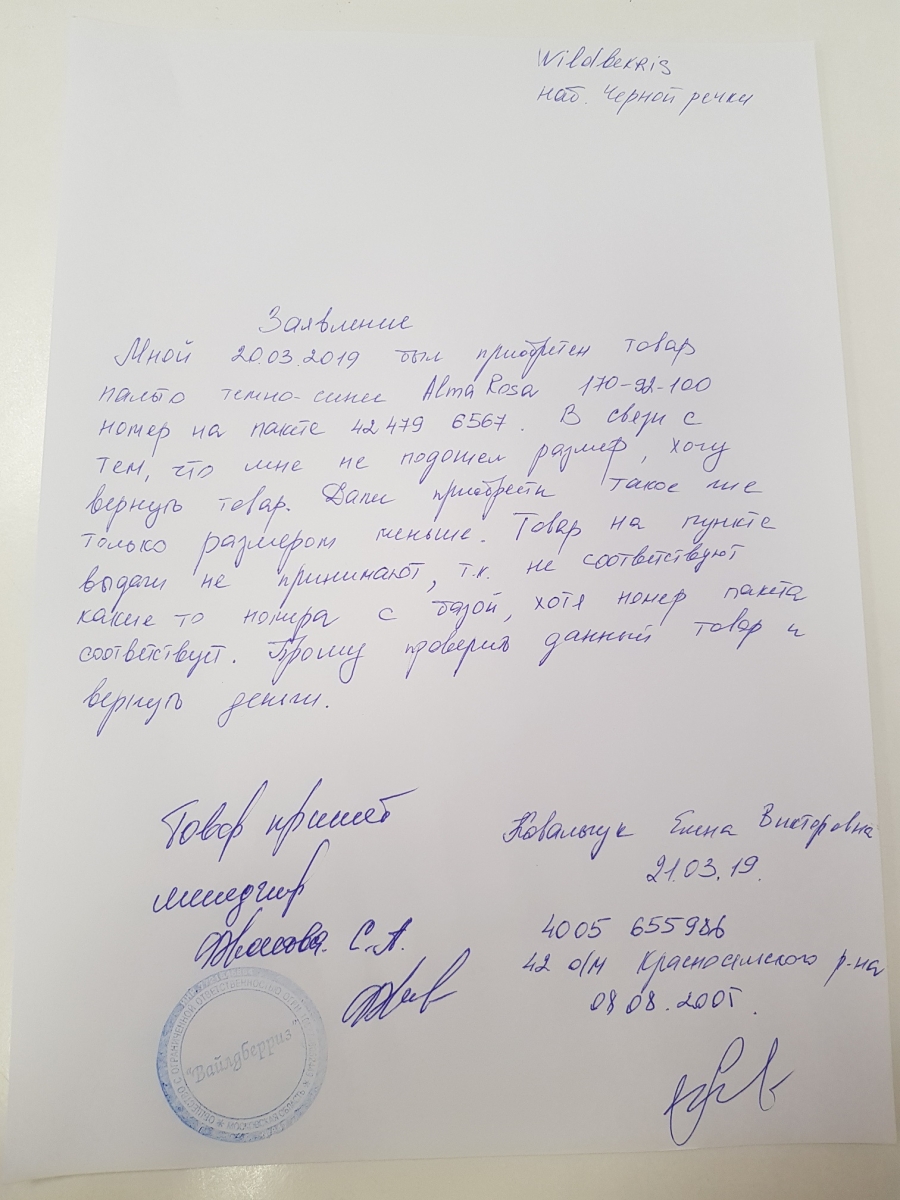 Wildberris
наб. Черной речки
Заявление
Мной 20.03.2019 был приобретен товар
пальто темно-синее Alma Rosa 170-92-100
номер на пакете 42479 6567. В связи с
тем, что мне не подошел размер, хочу
вернуть товар. Далее приобрести такое же
только размером меньше. Товар на пункте
выдачи не принимают, т.к. не соответствуют
какие то номера с базой, хотя номер пакета
соответствует. Прошу проверить данный товар и
вернуть деньги.
Товар принят
менеджер
С.А.
Ковальчук Елена Викторовна
21.03.19.
4005 655986
42 о/м Красносельского р-на
08 08.2005.
ОБЩЕСТВО С ОГРАНИЧЕННОЙ ОТВЕТСТВЕННОСТЬЮ
"Вайлдберриз"
МОСКОВСКАЯ ОБЛАСТЬ